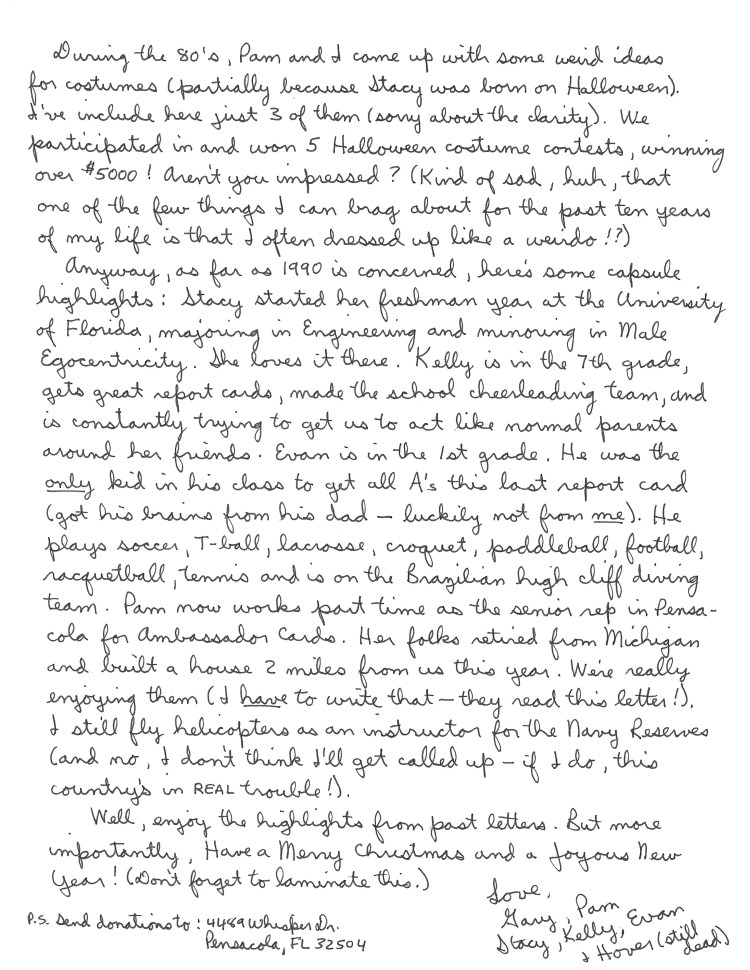 During the 80's, Pam and I came up with some weird ideas
for costumes (partially because Stacy was born on Halloween).
I've include here just 3 of them (sorry about the clarity). We
participated in and won 5 Halloween costume contests, winning
over $5000! Aren't you impressed? (Kind of sad, huh, that
one of the few things I can brag about for the past ten years
of my life is that I often dressed up like a weirdo!?)
Anyway, as far as 1990 is concerned, here's some capsule
highlights: Stacy started her freshman year at the University
of Florida, majoring in Engineering and minoring in Male
Egocentricity. She loves it there. Kelly is in the 7th grade,
gets great report cards, made the school cheerleading team, and
is constantly trying to get us to act like normal parents
around her friends. Evan is in the 1st grade. He was the
only kid in his class to get all A's this last report card
(got his brains from his dad – luckily not from me). He
plays soccer, T-ball, lacrosse, croquet, paddleball, football,
racquetball, tennis and is on the Brazilian high cliff diving
team. Pam now works part time as the senior rep in Pensa-
cola for Ambassador Cards. Her folks retired from Michigan
and built a house 2 miles from us this year. We're really
enjoying them (I have to write that – they read this letter!).
I still fly helicopters as an instructor for the Navy Reserves
(and no, I don't think I'll get called up – if I do, this
country's in REAL trouble!).
Well, enjoy the highlights from past letters. But more
importantly, Have a Merry Christmas and a Joyous New
Year! (Don't forget to laminate this.)
Love,
Gary, Pam
Stacy, Kelly, Evan
+ Hover (still
dead)
P.S. Send donations to: 4489 Whisper Dr.
Pensacola, FL 32504